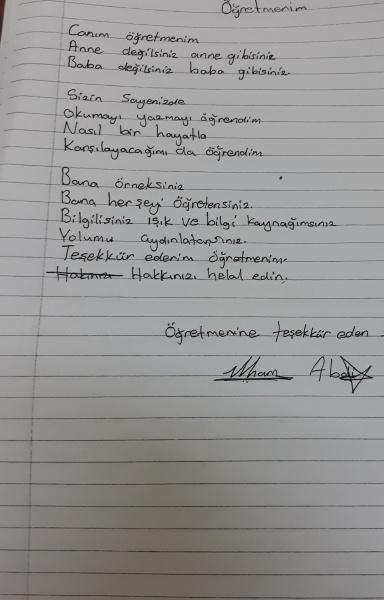 Öğretmenim
Canım öğretmenim
Anne değilsiniz anne gibisiniz
Baba değilsiniz baba gibisiniz.
Sizin Sayenizde
Okumayı yazmayı öğrendim
Nasıl bir hayatla
Karşılayacağımı da öğrendim
Bana örneksiniz
Bana her şeyi öğretensiniz.
Bilgilisiniz ışık ve bilgi kaynağımsınız
Yolumu aydınlatansınız.
Teşekkür ederim öğretmenim.
Hakkınızı helal edin.
Öğretmenine teşekkür eden
İlham